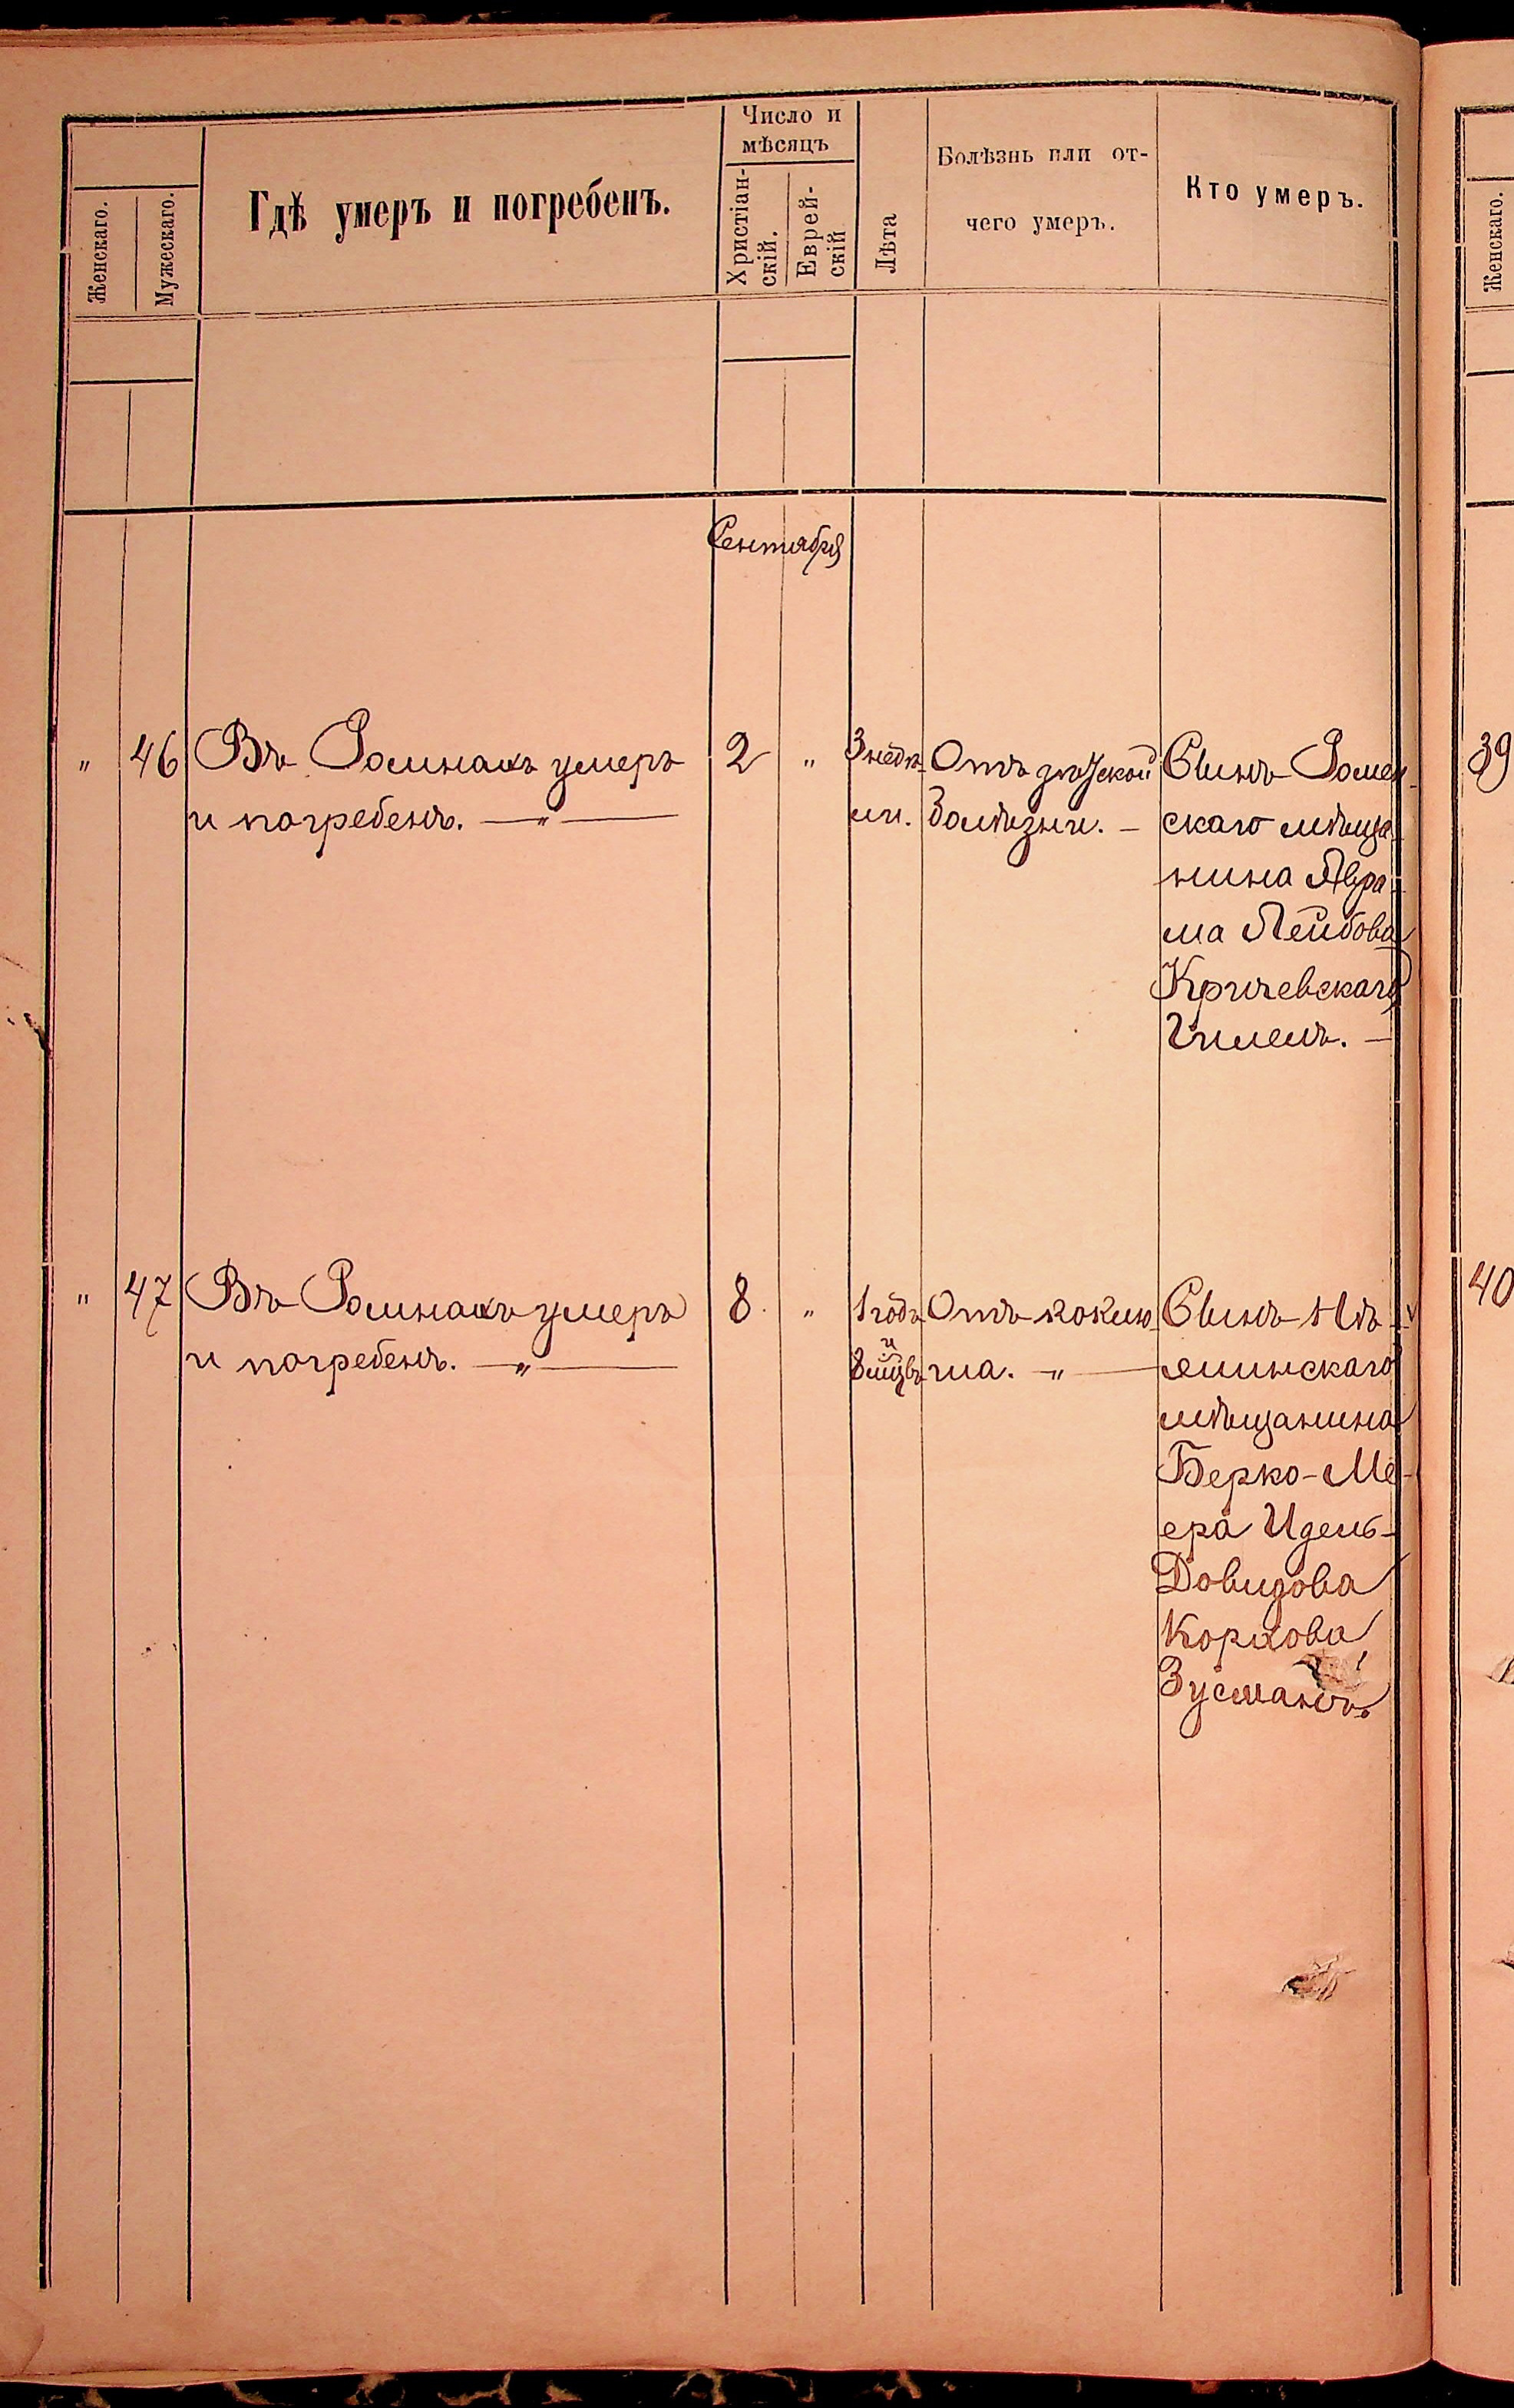 Женскаго.
Мужескаго.
Гдѣ умеръ и погребенъ.
Число и
мѣсяцъ
Христіан-
скій.
Еврей-
скій
Лѣта
Болѣзнь или от-
чего умеръ.
Кто умеръ.
Женскаго.
Сентября
" 46 Въ Ромнахъ умеръ
и погребенъ. — " —
2 "
3 недѣ-
ли.
Отъ дѣтской
болѣзни. —
Сынъ Ромен-
скаго мѣща-
нина Авра-
ма Лейбова
Кричевскаго
Гилель. —
39
" 47 Въ Ромнахъ умеръ
и погребенъ. — " —
8 "
1 годъ
и
8 мцвъ
Отъ коклю-
ша. — " —
Сынъ
мѣщанина
Берко-Ме-
ера Идель-
Довидова
Корхова
Зусманъ.
40